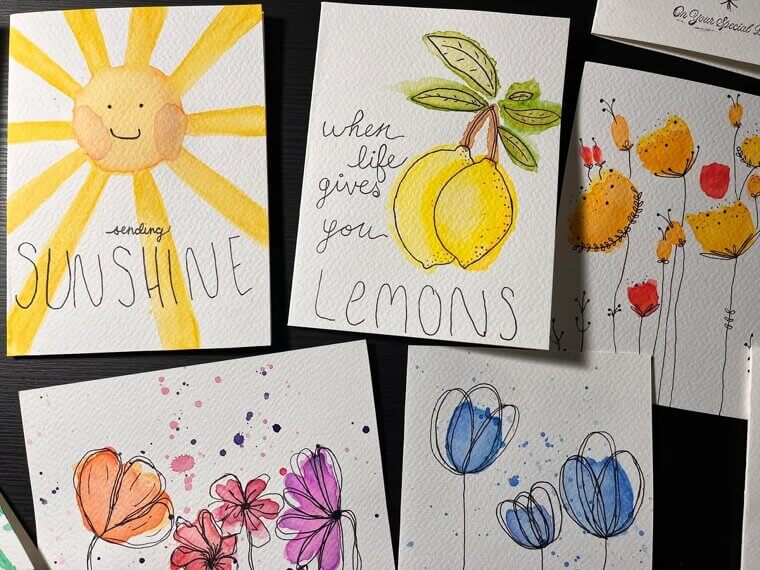 sending
SUNSHINE
when
life
gives
you
LEMONS
On Your Special